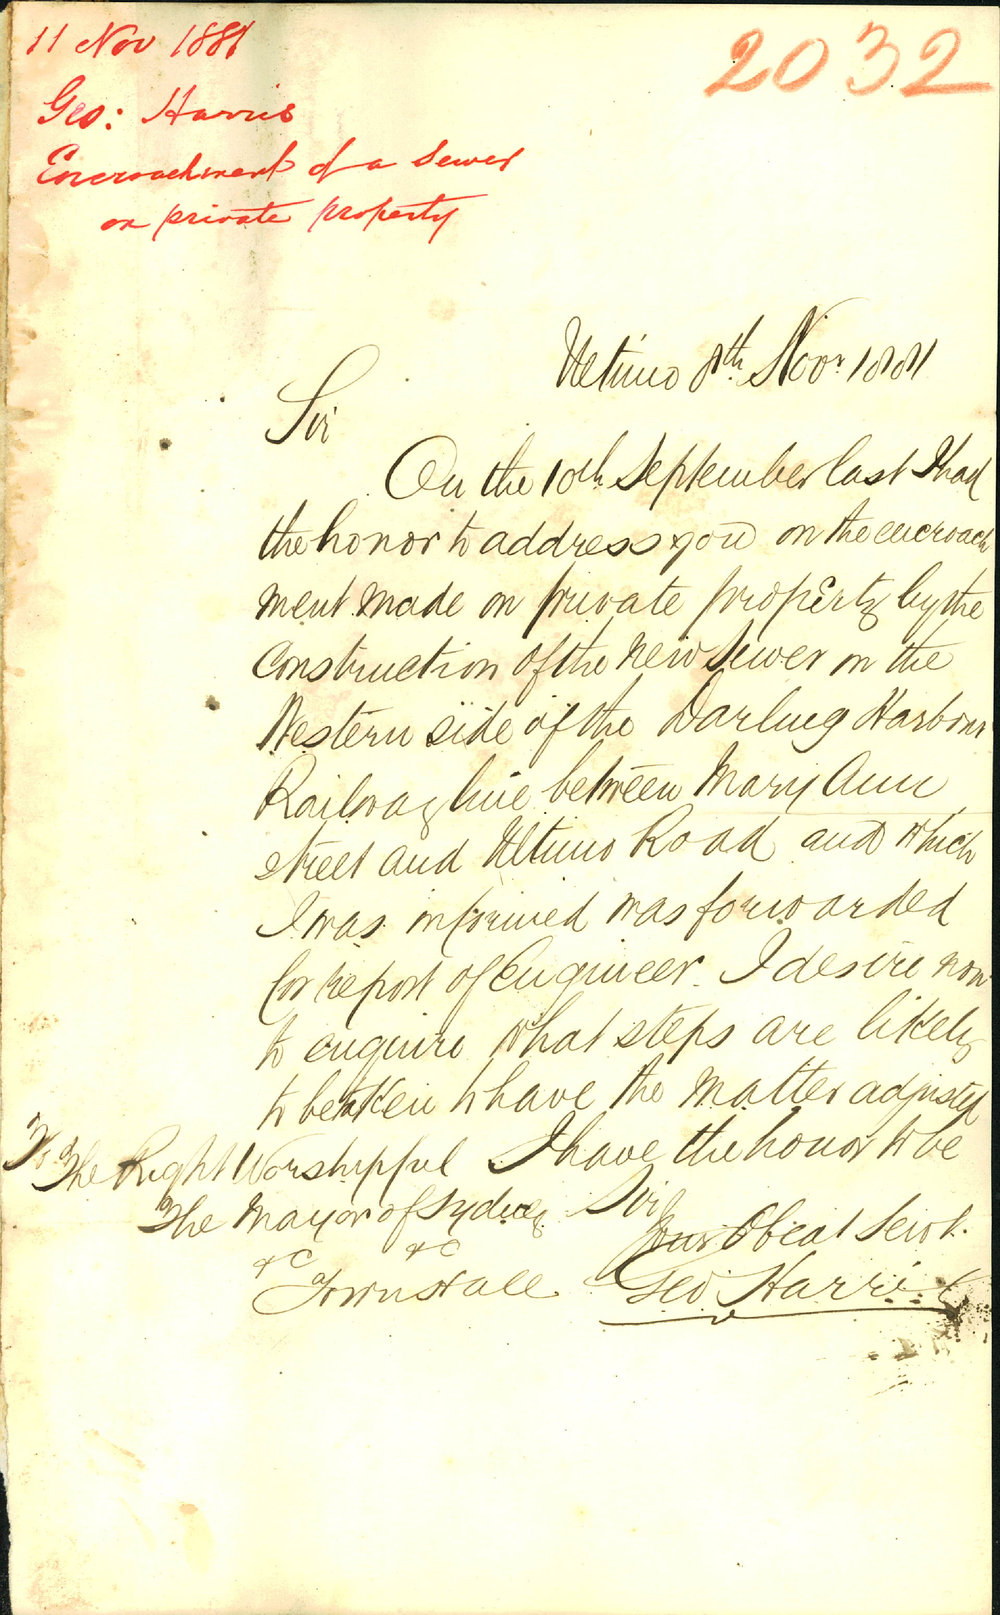 11 Nov 1881
2032
Geo: Harris
Encroachment of a Sewer
on private property
Ultimo 8th Novr 1881
Sir
On the 10th September last I had
the honor to address you on the encroach
ment made on private property by the
construction of the new sewer on the
Western side of the Darling Harbour
Railway line between Mary Ann
street and Ultimo Road and which
I was informed was forwarded
for report of Engineer. I desire now
to enquire what steps are likely
to be taken to have the matter adjusted
I have the honor to be
Sir
Your Obeat Servt.
Geo Harris
To The Right Worshipful
The Mayor of Sydney
&c &c
Town Hall